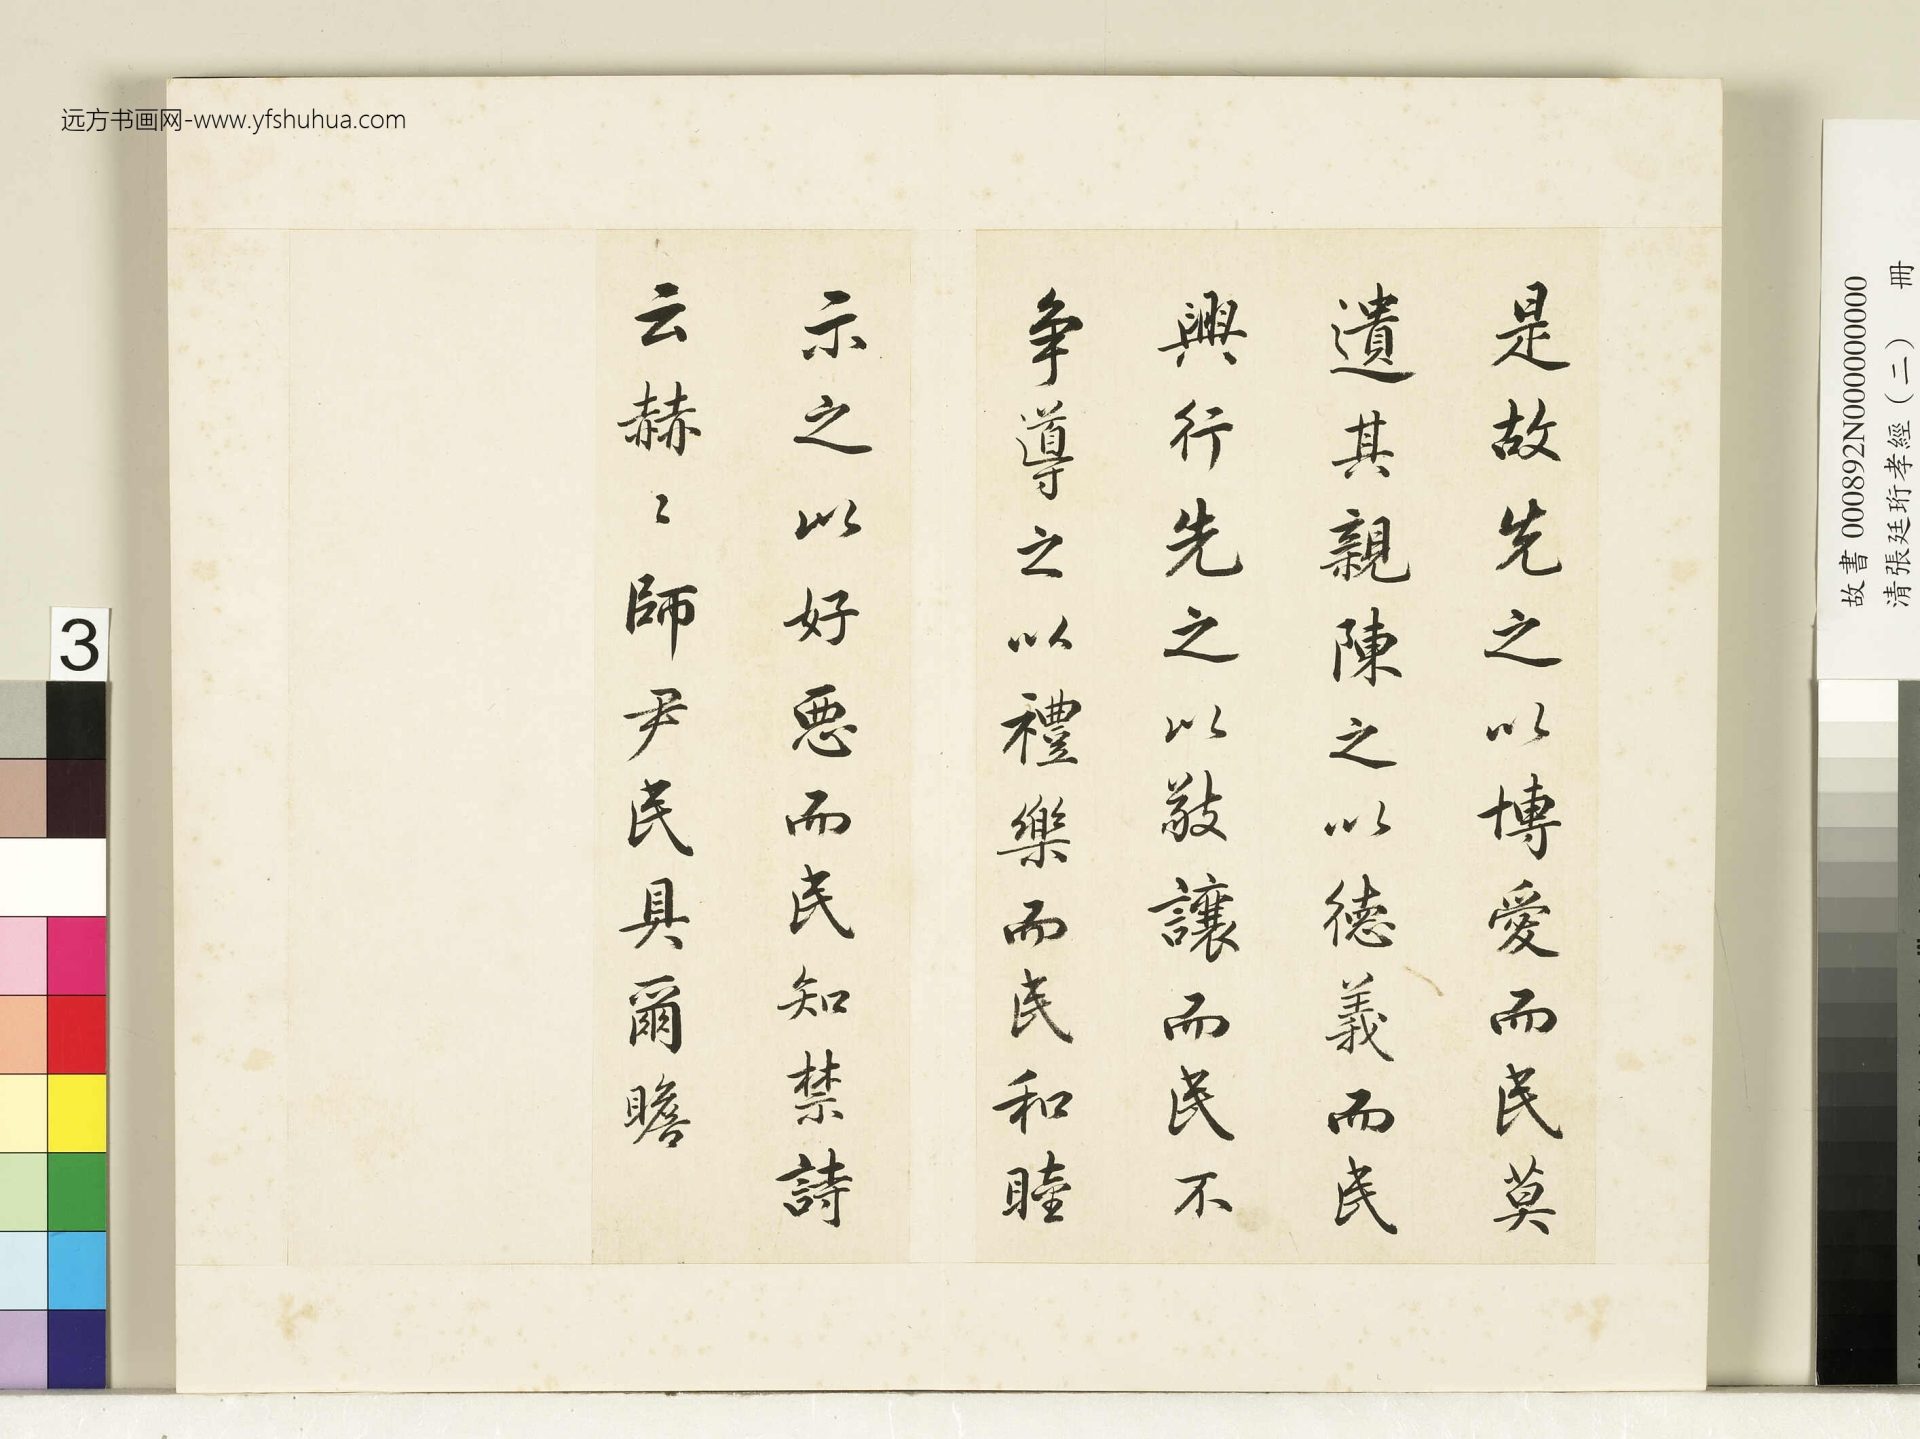 远方书画网-www.yfshuhua.com
是故先之以博愛而民莫
遺其親陳之以德義而民
興行先之以敬讓而民不
争導之以禮樂而民和睦
示之以好惡而民知禁詩
云赫〻師尹民具爾瞻
3
故書 000892N000000000
清張廷珩孝經（二） 冊